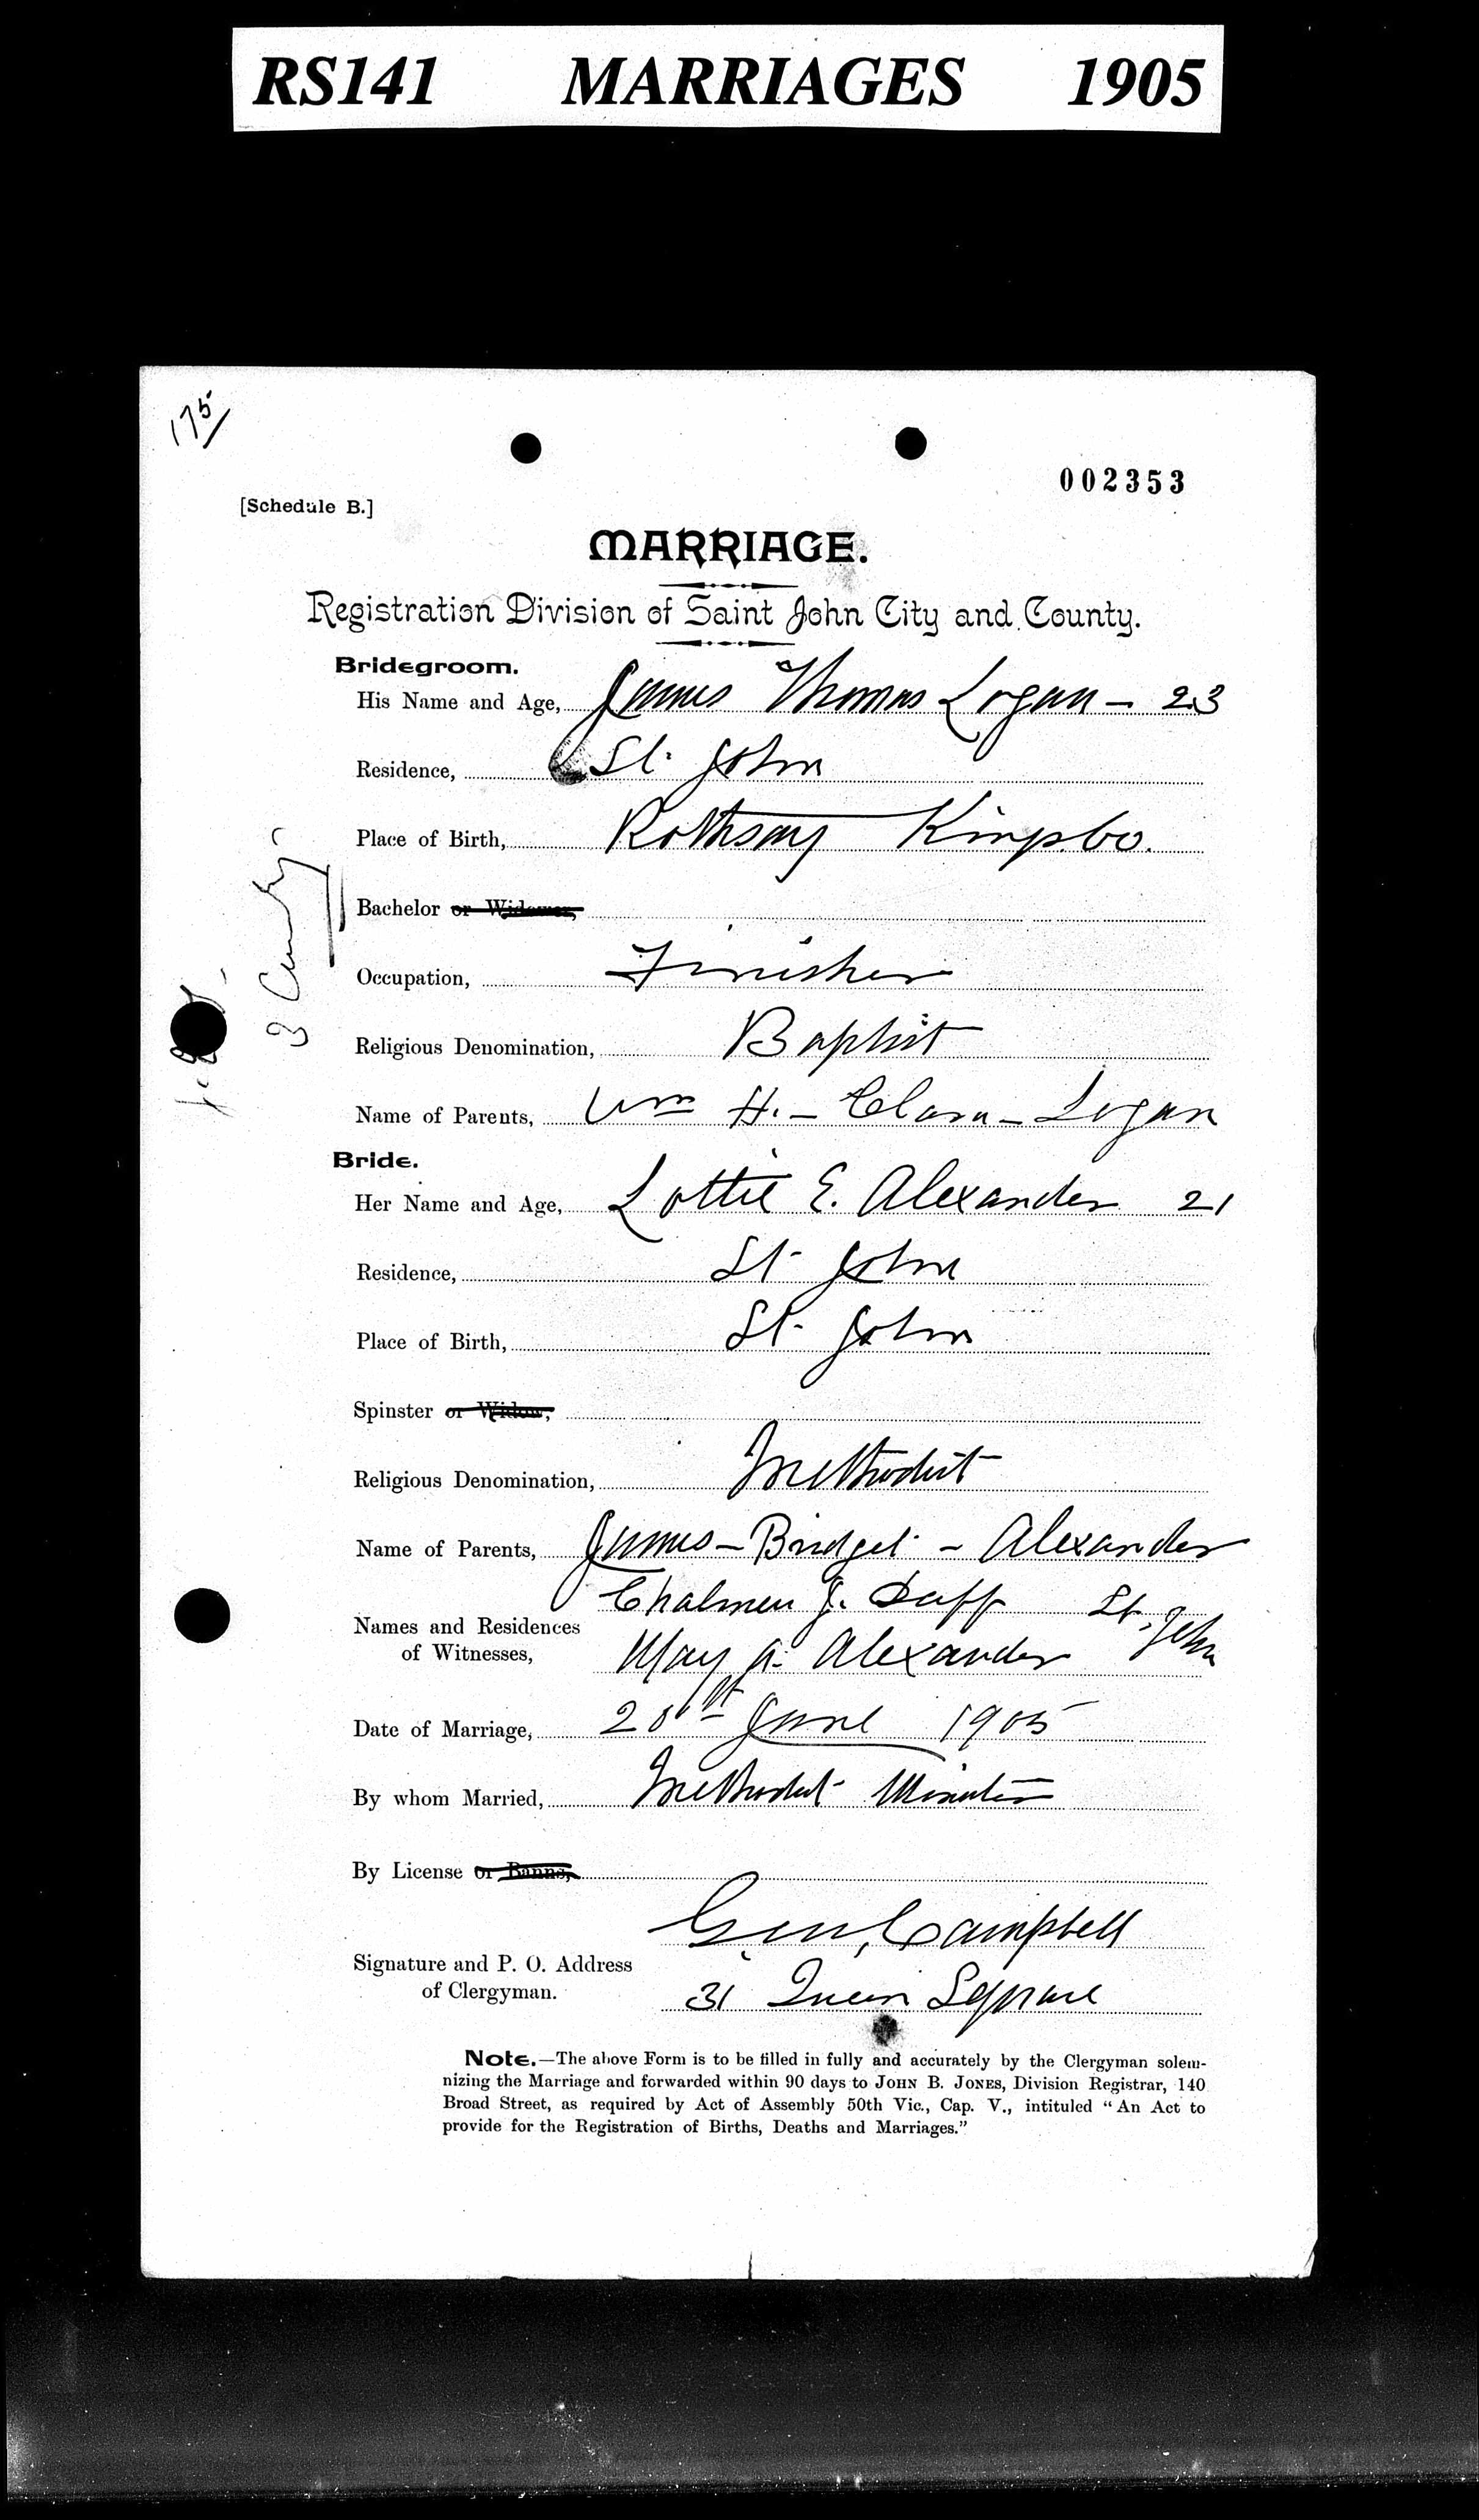 RS141 MARRIAGES 1905
175
002353
[Schedule B.]
MARRIAGE.
Registration Division of Saint John City and County.
Bridegroom.
His Name and Age, James Thomas Logan - 23
Residence, St. John
Place of Birth, Rothsay Kings Co.
Bachelor or Widower,
Occupation, Finisher
Religious Denomination, Baptist
Name of Parents, Wm H. - Clara - Logan
Bride.
Her Name and Age, Lottie E. Alexander 21
Residence, St. John
Place of Birth, St. John
Spinster or Widow,
Religious Denomination, Methodist
Name of Parents, James - Bridget - Alexander
Chalmers J. Duff St. John
Names and Residences
of Witnesses,
May A. Alexander
Date of Marriage, June 1905
By whom Married, Methodist Minister
By License or Banns,
Campbell
Signature and P. O. Address
of Clergyman.
31 Queen Square
Note.—The above Form is to be filled in fully and accurately by the Clergyman solem-
nizing the Marriage and forwarded within 90 days to JOHN B. JONES, Division Registrar, 140
Broad Street, as required by Act of Assembly 50th Vic., Cap. V., intituled "An Act to
provide for the Registration of Births, Deaths and Marriages."